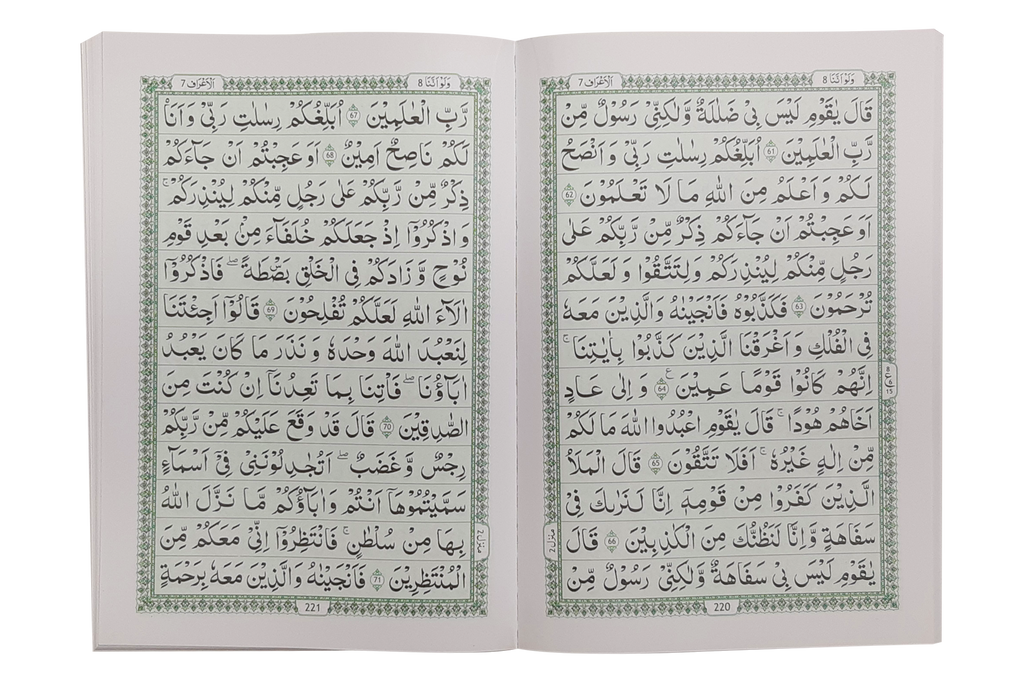 وَلَوْ اَنَّنَا 8
اَلْاَعْرَاف 7
قَالَ يٰقَوْمِ لَيْسَ بِىْ ضَلٰلَةٌ وَّلٰكِنِّىْ رَسُوْلٌ مِّنْ
رَّبِّ الْعٰلَمِيْنَ 61 اُبَلِّغُكُمْ رِسٰلٰتِ رَبِّىْ وَاَنْصَحُ
لَكُمْ وَاَعْلَمُ مِنَ اللّٰهِ مَا لَا تَعْلَمُوْنَ 62
اَوَعَجِبْتُمْ اَنْ جَآءَكُمْ ذِكْرٌ مِّنْ رَّبِّكُمْ عَلٰى
رَجُلٍ مِّنْكُمْ لِيُنْذِرَكُمْ وَلِتَتَّقُوْا وَلَعَلَّكُمْ
تُرْحَمُوْنَ 63 فَكَذَّبُوْهُ فَاَنْجَيْنٰهُ وَالَّذِيْنَ مَعَهٗ
فِى الْفُلْكِ وَاَغْرَقْنَا الَّذِيْنَ كَذَّبُوْا بِاٰيٰتِنَا ۚ
اِنَّهُمْ كَانُوْا قَوْمًا عَمِيْنَ 64 ع وَاِلٰى عَادٍ
اَخَاهُمْ هُوْدًا ۚ قَالَ يٰقَوْمِ اعْبُدُوا اللّٰهَ مَا لَكُمْ
مِّنْ اِلٰهٍ غَيْرُهٗ ۚ اَفَلَا تَتَّقُوْنَ 65 قَالَ الْمَلَاُ
الَّذِيْنَ كَفَرُوْا مِنْ قَوْمِهٖٓ اِنَّا لَنَرٰىكَ فِىْ
سَفَاهَةٍ وَّاِنَّا لَنَظُنُّكَ مِنَ الْكٰذِبِيْنَ 66 قَالَ
يٰقَوْمِ لَيْسَ بِىْ سَفَاهَةٌ وَّلٰكِنِّىْ رَسُوْلٌ مِّنْ
منزل 2
220
وَلَوْ اَنَّنَا 8
اَلْاَعْرَاف 7
رَّبِّ الْعٰلَمِيْنَ 67 اُبَلِّغُكُمْ رِسٰلٰتِ رَبِّىْ وَاَنَا۟
لَكُمْ نَاصِحٌ اَمِيْنٌ 68 اَوَعَجِبْتُمْ اَنْ جَآءَكُمْ
ذِكْرٌ مِّنْ رَّبِّكُمْ عَلٰى رَجُلٍ مِّنْكُمْ لِيُنْذِرَكُمْ ۚ
وَاذْكُرُوْٓا اِذْ جَعَلَكُمْ خُلَفَآءَ مِنْۢ بَعْدِ قَوْمِ
نُوْحٍ وَّزَادَكُمْ فِى الْخَلْقِ بَصْۜطَةً ۖ فَاذْكُرُوْٓا
اٰلَآءَ اللّٰهِ لَعَلَّكُمْ تُفْلِحُوْنَ 69 قَالُوْٓا اَجِئْتَنَا
لِنَعْبُدَ اللّٰهَ وَحْدَهٗ وَنَذَرَ مَا كَانَ يَعْبُدُ
اٰبَآؤُنَا ۖ فَاْتِنَا بِمَا تَعِدُنَآ اِنْ كُنْتَ مِنَ
الصّٰدِقِيْنَ 70 قَالَ قَدْ وَقَعَ عَلَيْكُمْ مِّنْ رَّبِّكُمْ
رِجْسٌ وَّغَضَبٌ ۖ اَتُجَادِلُوْنَنِىْ فِىْٓ اَسْمَآءٍ
سَمَّيْتُمُوْهَآ اَنْتُمْ وَاٰبَآؤُكُمْ مَّا نَزَّلَ اللّٰهُ
بِهَا مِنْ سُلْطٰنٍ ۚ فَانْتَظِرُوْٓا اِنِّىْ مَعَكُمْ مِّنَ
الْمُنْتَظِرِيْنَ 71 فَاَنْجَيْنٰهُ وَالَّذِيْنَ مَعَهٗ بِرَحْمَةٍ
منزل 2
221